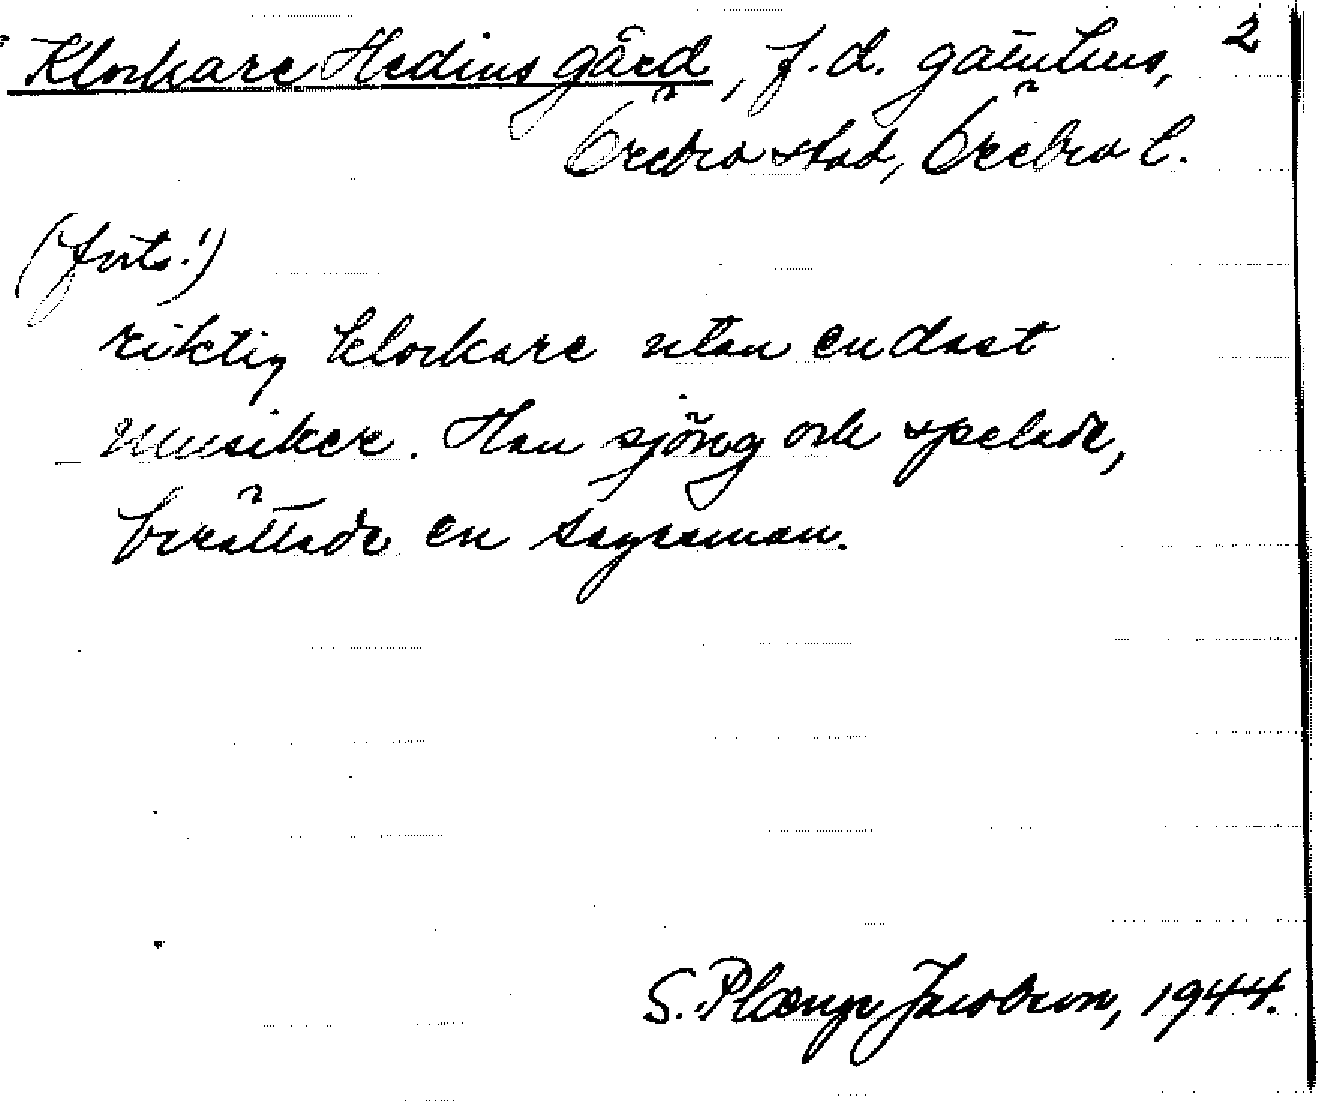 Klockare Hedins gård, f.d. gästhus, 2
Örebro stad, Örebro l.
(forts.!)
riktig klockare utan endast
musiker. Han sjöng och spelade,
berättade en sagesman.
S. Plænge Jacobson, 1944.